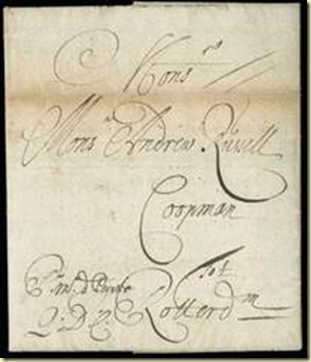 Mons rs
Mons r Andrew Russell
Coopman
Tot
Rotterd m
Q: D: C: